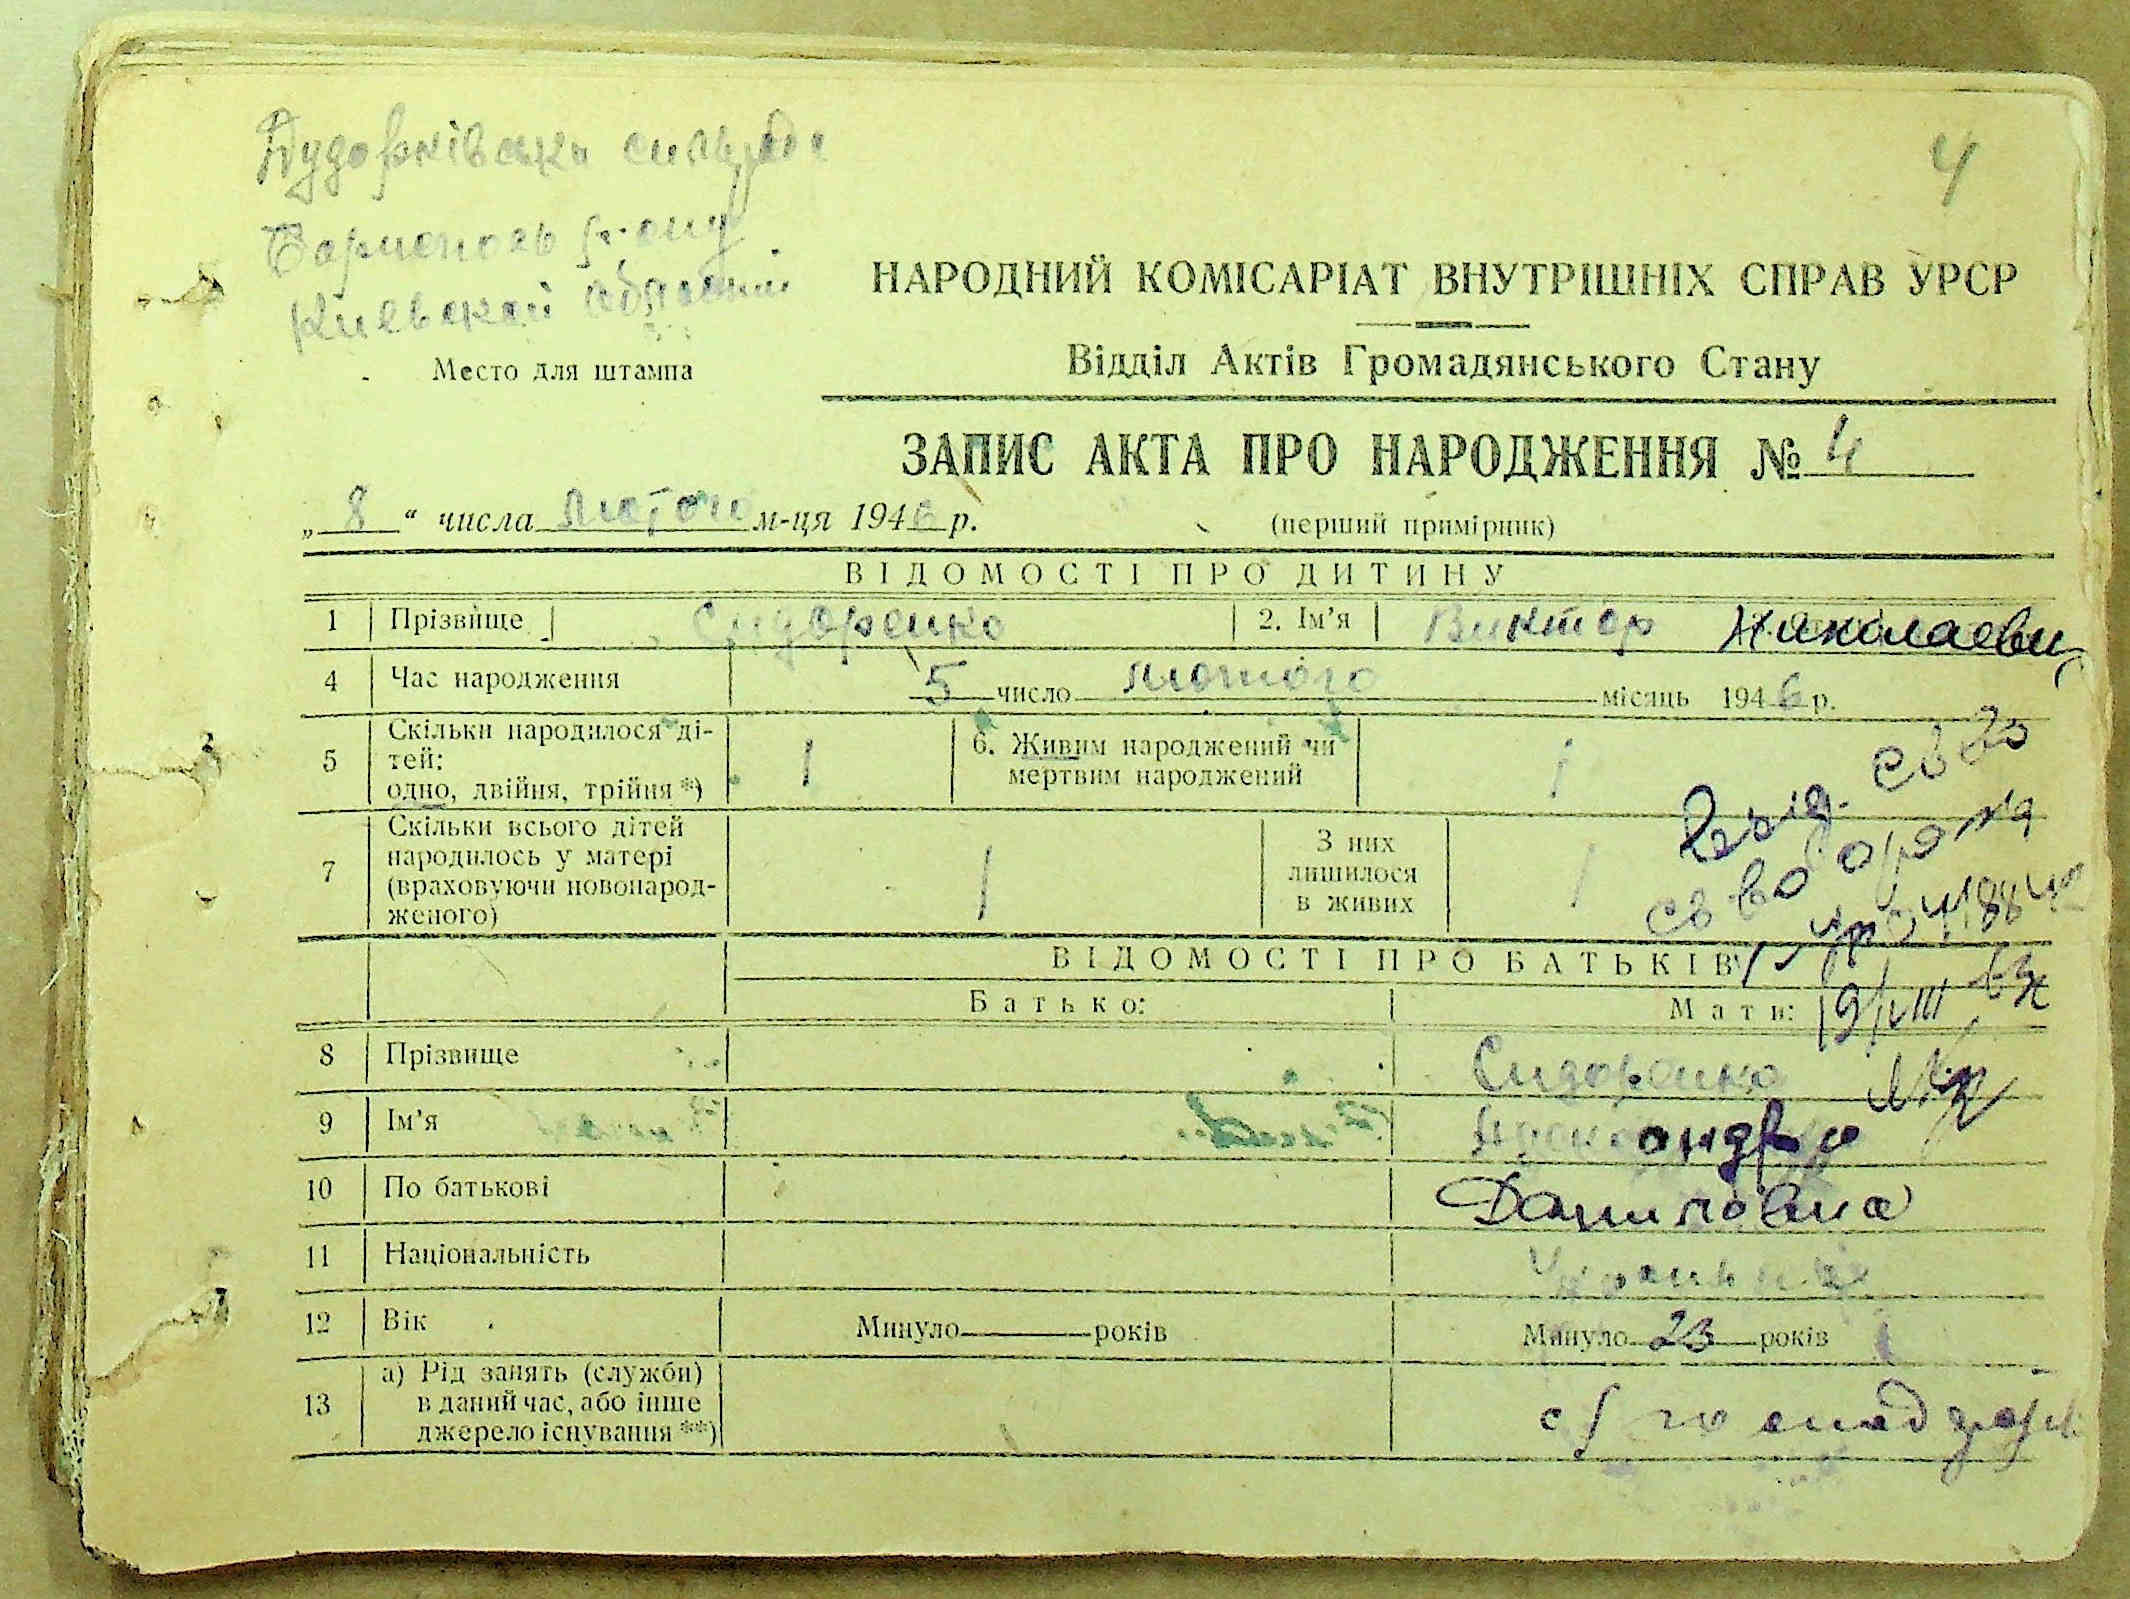 Дударківська сильрада
4
Бориспозь району
Киевской области
НАРОДНИЙ КОМІСАРІАТ ВНУТРІШНІХ СПРАВ УРСР
Место для штампа
Відділ Актів Громадянського Стану
ЗАПИС АКТА ПРО НАРОДЖЕННЯ № 4
„ 8 “ числа лютого м-ця 1946 р.
(перший примірник)
ВІДОМОСТІ ПРО ДИТИНУ
1 Прізвище Сидоренко 2. Ім’я Виктор Николаевич
4 Час народження 5 число лютого місяць 1946 р.
5 Скільки народилося ді-
тей:
одно, двійня, трійня *) 1
6. Живим народжений чи
мертвим народжений 1
7 Скільки всього дітей
народилось у матері
(враховуючи новонарод-
женого) 1
З них
лишилося
в живих 1
ВІДОМОСТІ ПРО БАТЬКІВ
Батько: Мати:
19/VIII
8 Прізвище Сидоренко
9 Ім’я
10 По батькові Даниловна
11 Національність
12 Вік Минуло років Минуло 23 років
13 а) Рід занять (служби)
в даний час, або інше
джерело існування **)